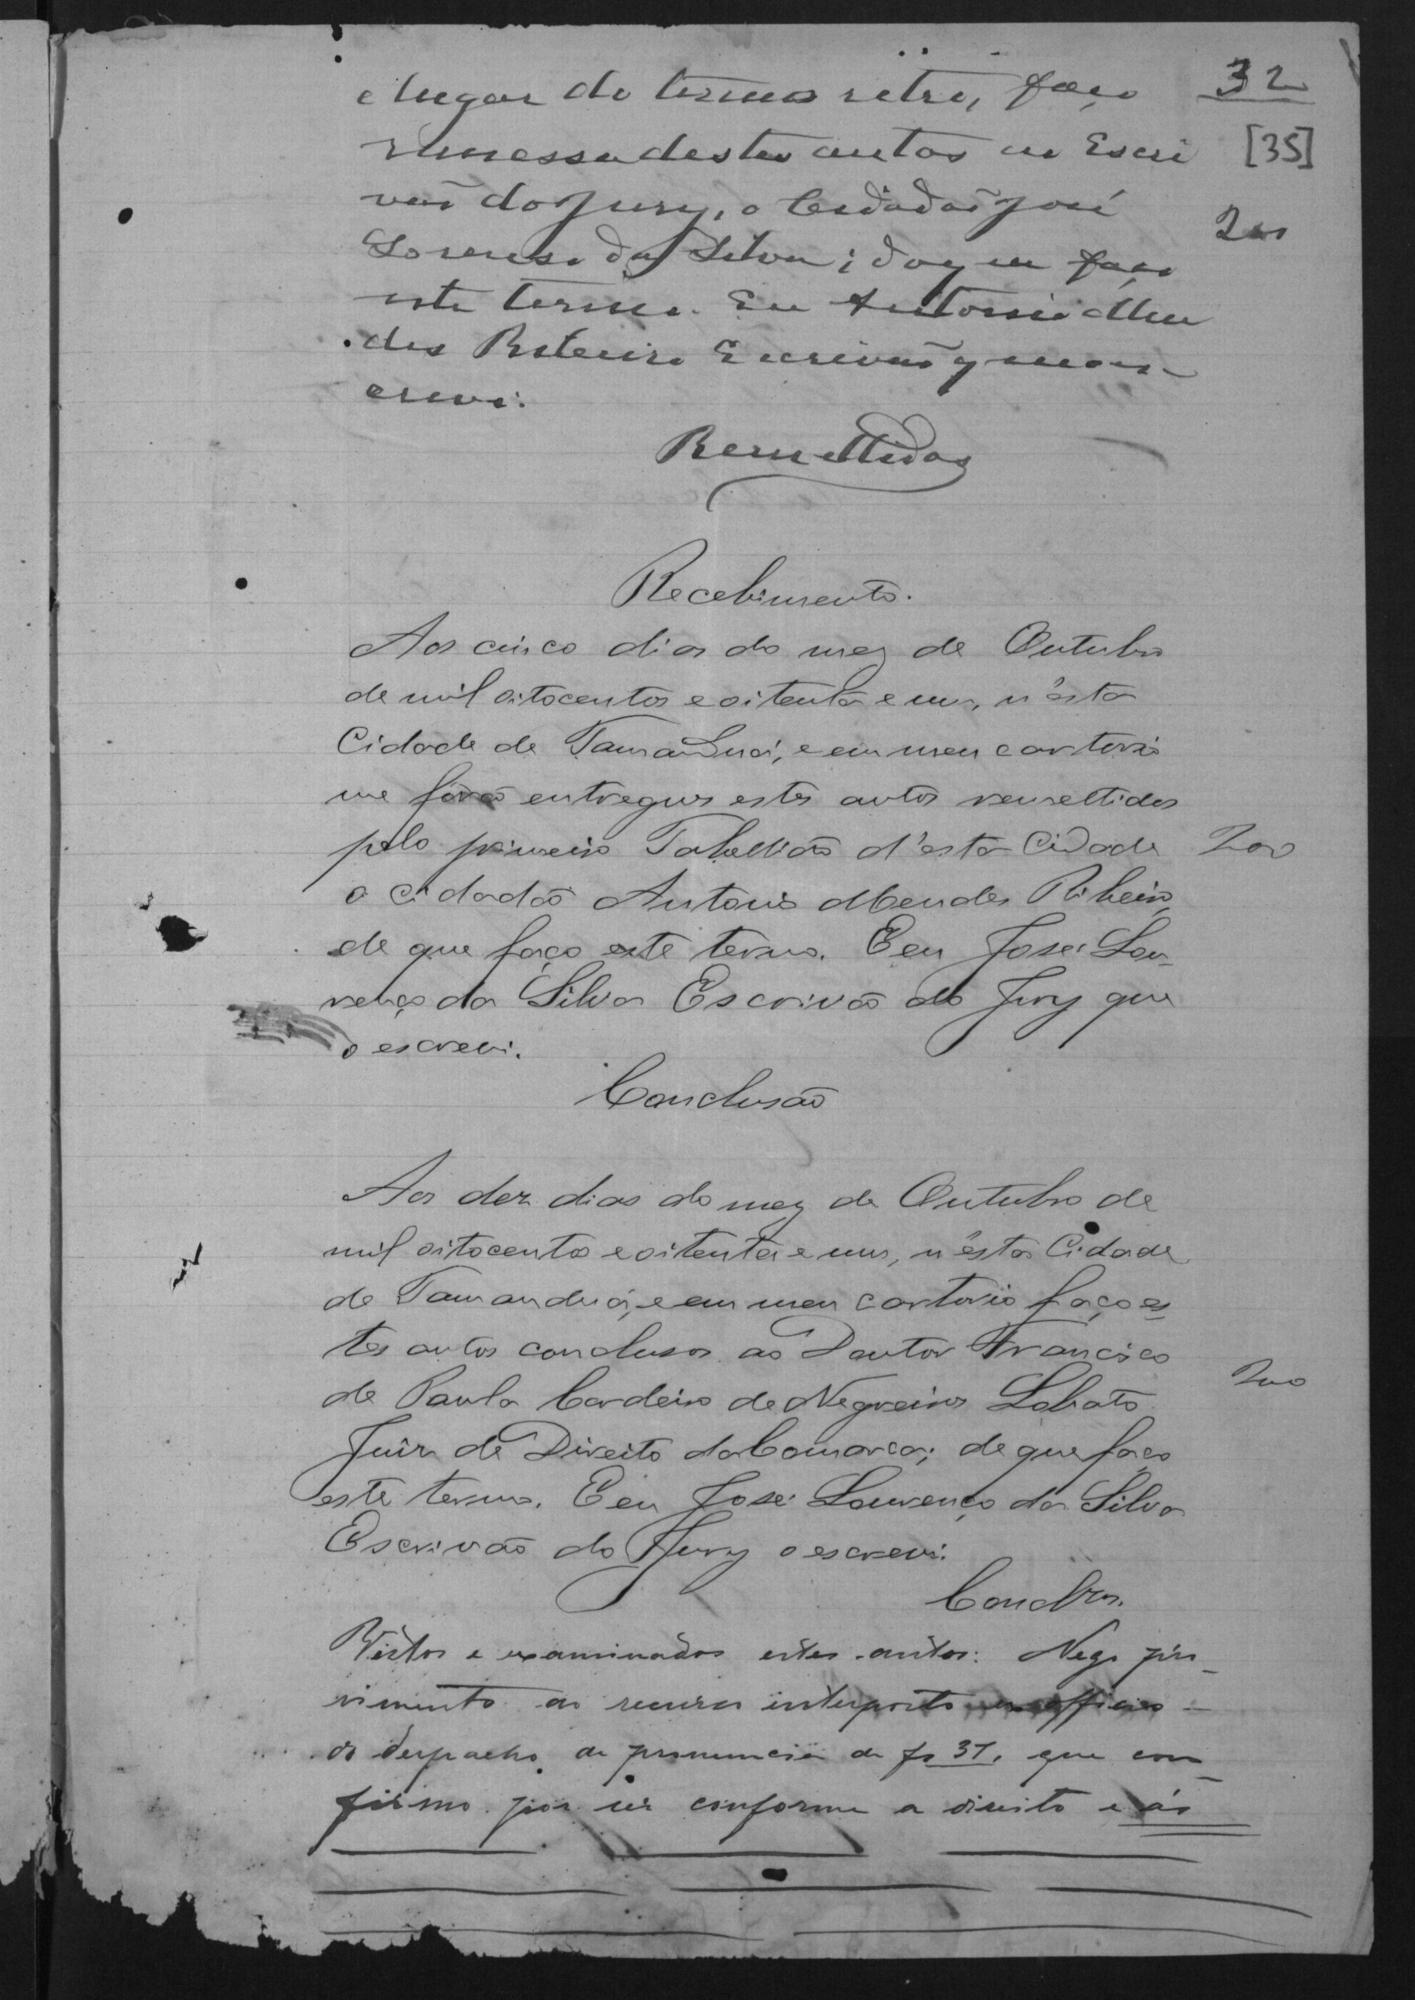 32
[35]
e lugar do termo retro, faço
remessa destes autos ao Escri
vão do Jury, o Cidadão José
200
Lourenso da Silva; do q̃ eu faço
este termo. Eu Antonio Men
des Ribeiro Escrivão q̃
escrevi.
Remettidos
Recebimento.
Aos cinco dias do mez de Outubro
de mil oitocentos e oitenta e um, n'esta
Cidade de Tamanduá, e em meu cartorio
me forão entregues estes autos remettidos
pelo primeiro Tabellião d'esta Cidade
200
o cidadão Antonio Mendes Ribeiro,
de que faço este termo. E eu José Lou-
renço da Silva Escrivão do Jury que
o escrevi.
Conclusão
Aos dez dias do mez de Outubro de
mil oitocentos e oitenta e um, n'esta Cidade
de Tamanduá, e em meu cartorio faço es
tes autos conclusos ao Doutor Francisco
de Paula Cordeiro de Negreiros Lobato
200
Juiz de Direito da Comarca; de que faço
este termo. E eu José Lourenço da Silva
Escrivão do Jury o escrevi.
Conclos.
Vistos e examinados estes autos: Nego pro-
vimento ao recurso interposto ex-officio
do despacho de pronuncia de fs 31, que con-
firmo por ser conforme a direito e ás